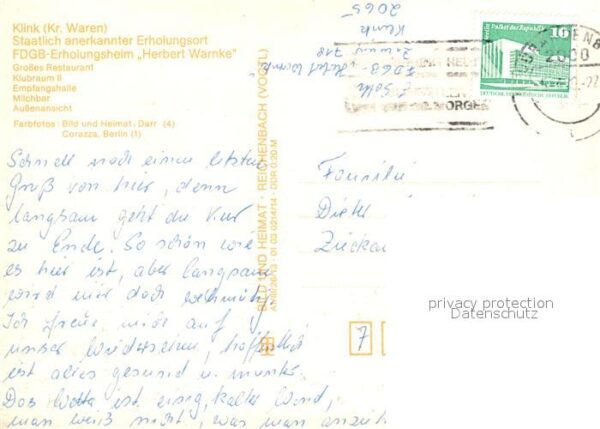 Klink (Kr. Waren)
Staatlich anerkannter Erholungsort
FDGB-Erholungsheim „Herbert Warnke"
Großes Restaurant
Klubraum II
Empfangshalle
Milchbar
Außenansicht
Farbfotos: Bild und Heimat: Darr (4)
Corazza, Berlin (1)
Schnell noch einen letzten
Gruß von hier, denn
langsam geht die Kur
zu Ende. So schön wie
es hier ist, aber langsam
wird mir doch wehmütig.
Ich freue mich auf
unser Wiedersehen, hoffentlich
ist alles gesund u. munter.
Das Wetter ist eisig, kalter Wind,
man weiß nicht, was man anzieh
BILD UND HEIMAT · REICHENBACH (VOGTL)
DDR 0,20 M
FDGB-
Zimmer 718
Klink
2065
Palast der Republik
10
MORGEN
Familie
Dieter
Zwickau
7
privacy protection
Datenschutz